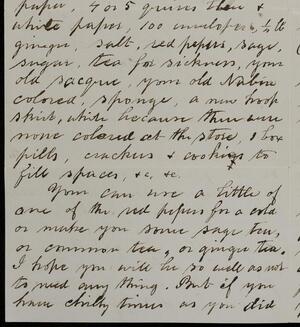 paper, 4 or 5 quires thin &
white paper, 100 envelopes, ½ lb
ginger, salt, red pepers, sage,
sugar, tea for sickness, your
old sacque, your old Nubia
colored, sponge, a new hoop
skirt, white because there were
none colored at the store, 1 box
pills, crackers & cookies to
fill spaces, &c, &c.
You can use a little of
one of the red pepers for a cold
or make you some sage tea,
or common tea, or ginger tea.
I hope you will be so well as not
to need any thing. But if you
have chilly times as you did